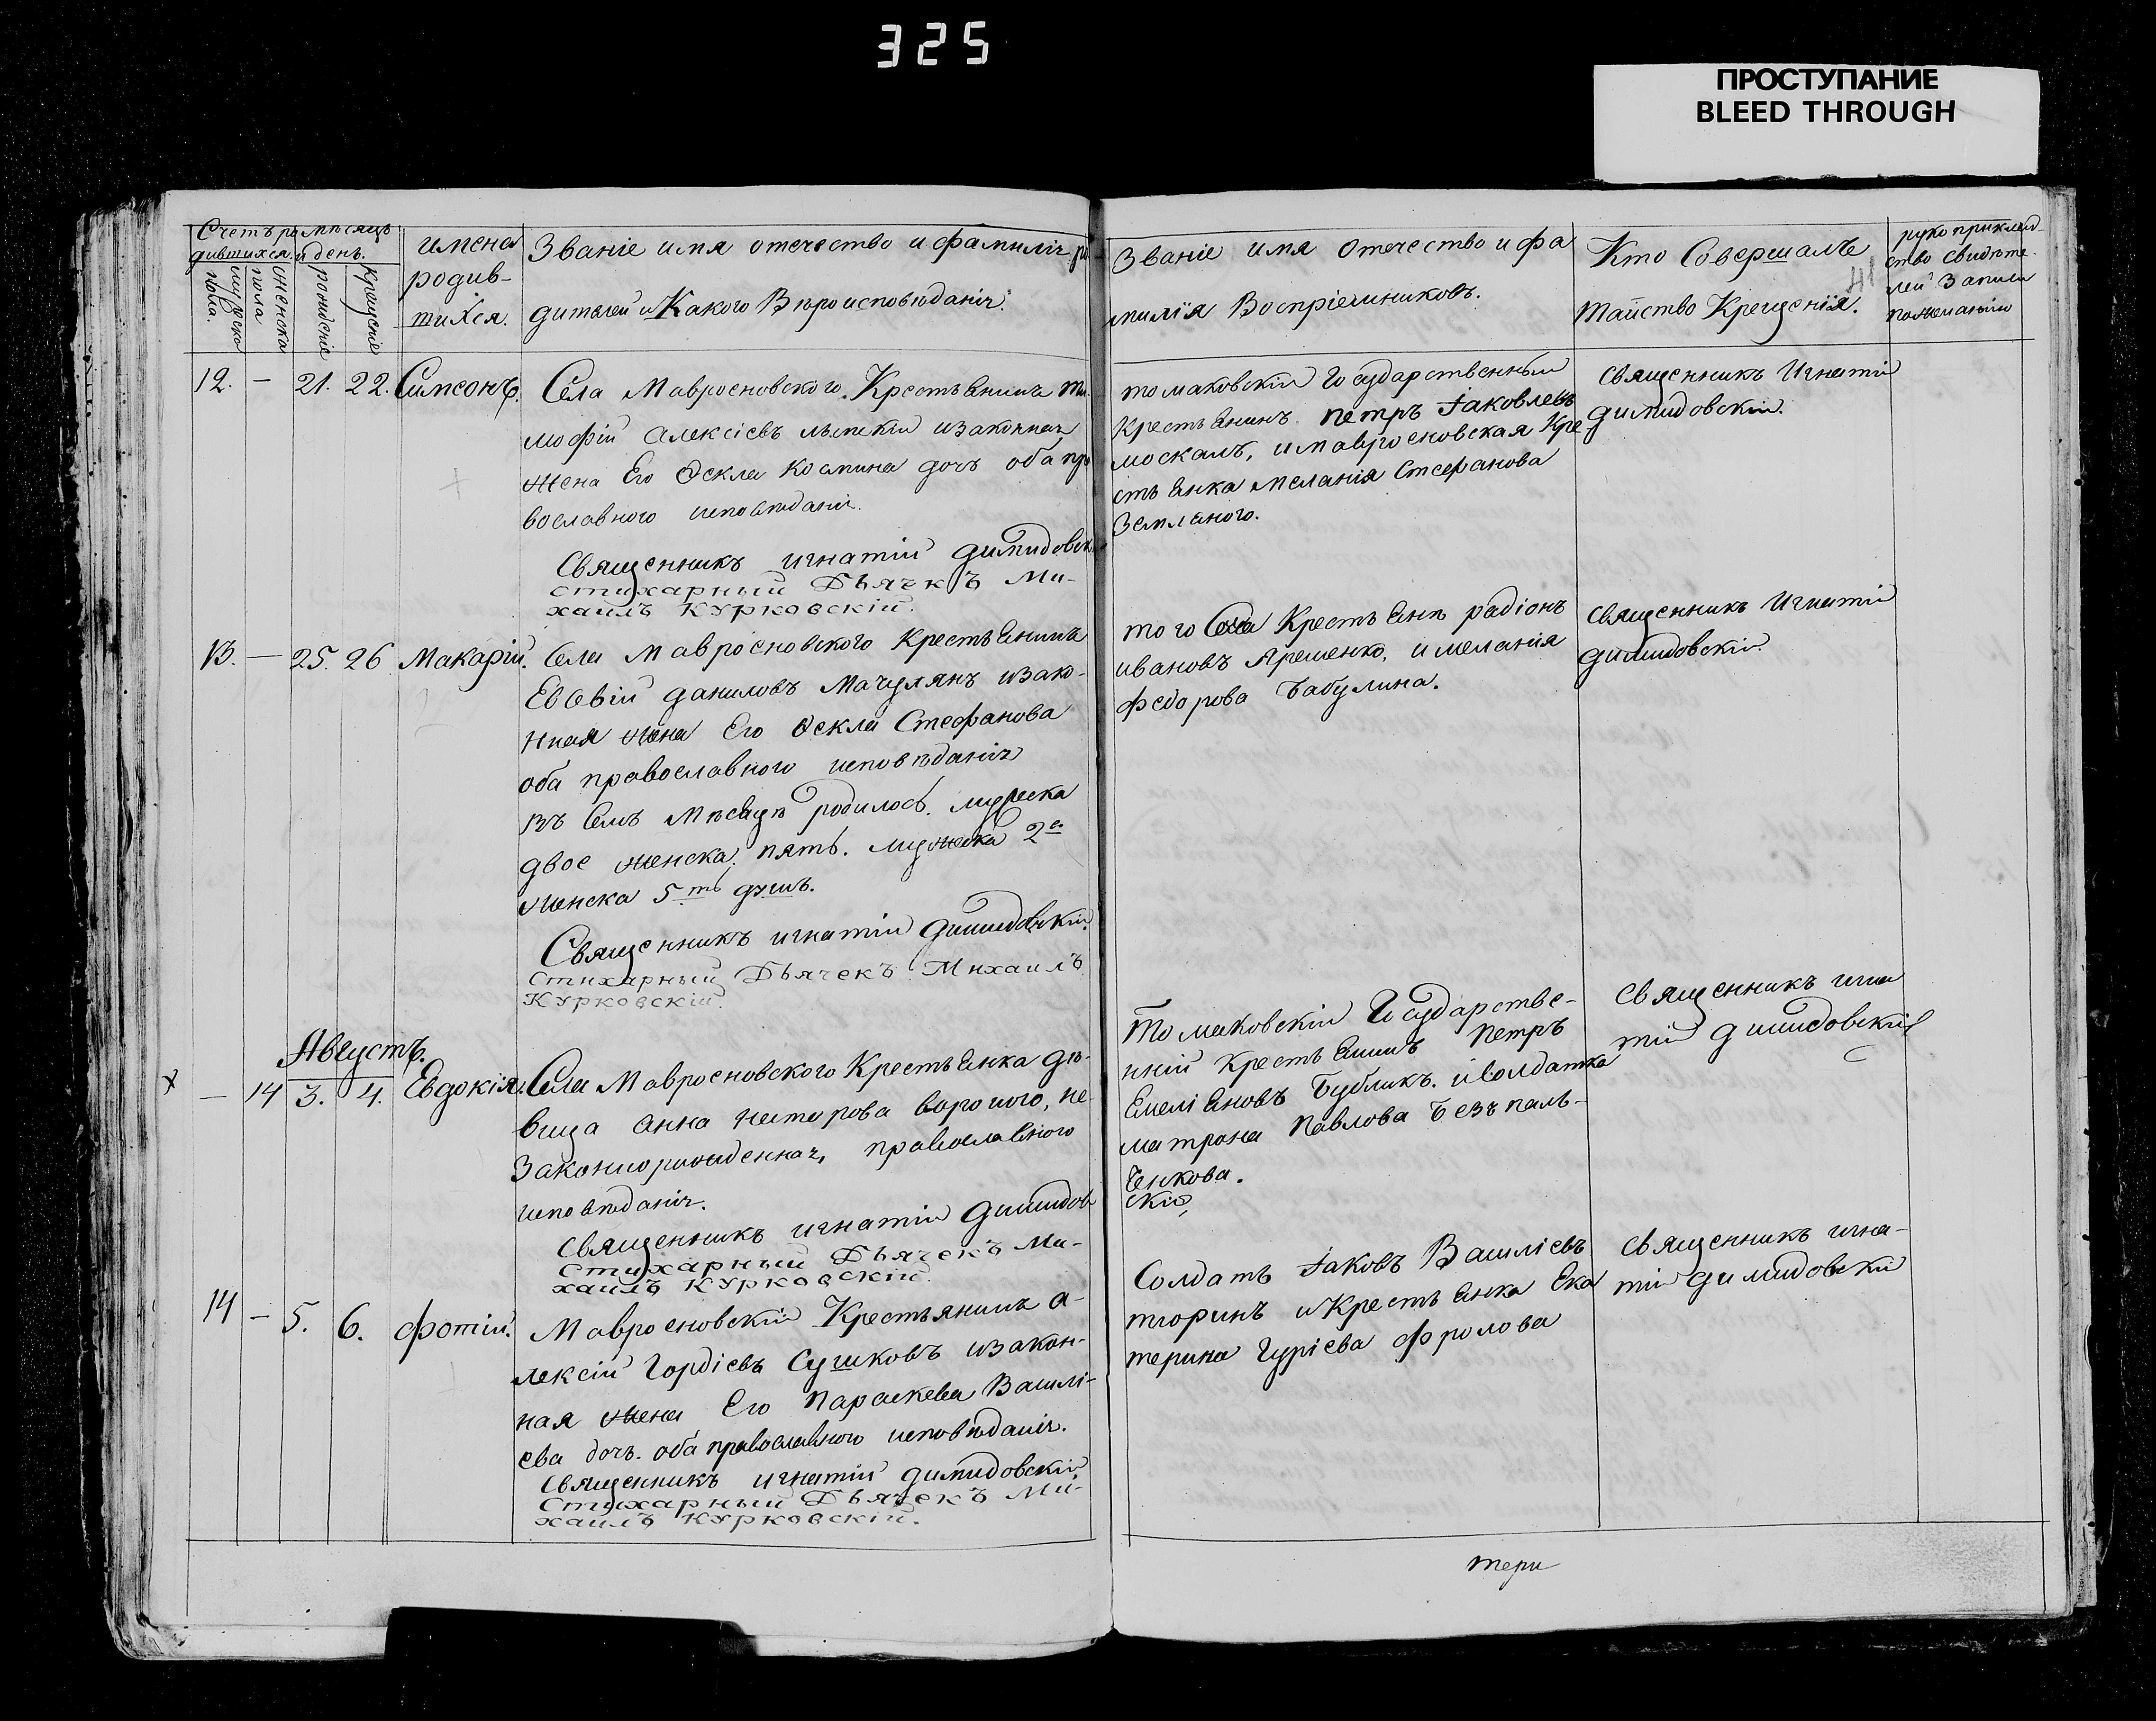 325
ПРОСТУПАНИЕ
BLEED THROUGH
Счетъ ро
дившихся
мѣсяцъ
и день.
мужеска
пола.
женска
пола
рожденіе
крещеніе
имена
родив-
шихся.
Званіе имя отечество и фамилія ро
дителей и Какого Вѣроисповѣданія.
Званіе имя отечество и фа
милія Воспріемниковъ.
Кто Совершалъ
таинство Крещенія.
41
рукоприклад-
ство свидѣте-
лей Записи
пожеланію
12. — 21. 22. Симеонъ.
Села Мавроеновского Крестьенинъ Ти
мофій Алексіевъ изаконная
жена Его Ѳекла Космина дочь оба пра
вославного исповѣданія.
Священникъ игнатіи димидовск
стихарный Дьячкъ Ми-
хаилъ Курковскій.
томаковскій Государственный
Крестьенинъ петръ Іаковлевъ
москаль, имавроеновская Кре
стьенка меланія Стефанова
Земленого.
Священникъ Игнатій
димидовскій.
13. — 25. 26 Макарій.
Села Мавроеновского Крестьенинъ
Евѳвій даниловъ Мачулянъ изако-
нная жена Его Ѳекла Стефанова
оба православного исповѣданія
въ семъ мѣсецѣ родилось. мужеска
двое женска. пять. мужеска 2е
женска 5ть душъ.
Священникъ игнатіи димидовскіи.
Стихарный Дьячекъ Михаилъ
Курковскій.
того Села Крестьенъ радіонъ
ивановъ Яременко, имеланія
федорова Бабулина.
Священникъ Игнатій
димидовскій.
Августъ.
х — 14 3. 4. Евдокія.
Села Мавроеновского Крестьенка дѣ-
вица Анна нестерова вороного, не
законнорожденная, православного
исповѣданія.
Священникъ игнатіи димидов
Стихарный Дьячекъ Ми-
хаилъ Курковскій.
Томаковскіи Государстве-
нній крестьенинъ Петръ
Емеліеновъ Бубликъ. исолдатка
матрона Павлова Безпаль-
ченкова.
скіи,
Священникъ игна
тіи димидовскій
14 — 5. 6. фотій.
Мавроеновскіи Крестьянинъ а-
лексій Гордіевъ Сушковъ изакон-
ная жена Его Параскева Василі-
ева дочь. оба православного исповѣданія.
Священникъ игнатіи димидовскіи,
Стихарный Дьячекъ Ми-
хаилъ Курковскій.
Солдатъ Іаковъ Василіевъ
икрестьенка Ека
терина Гуріева Фролова
Священникъ игна-
тіи димидовскій
тери